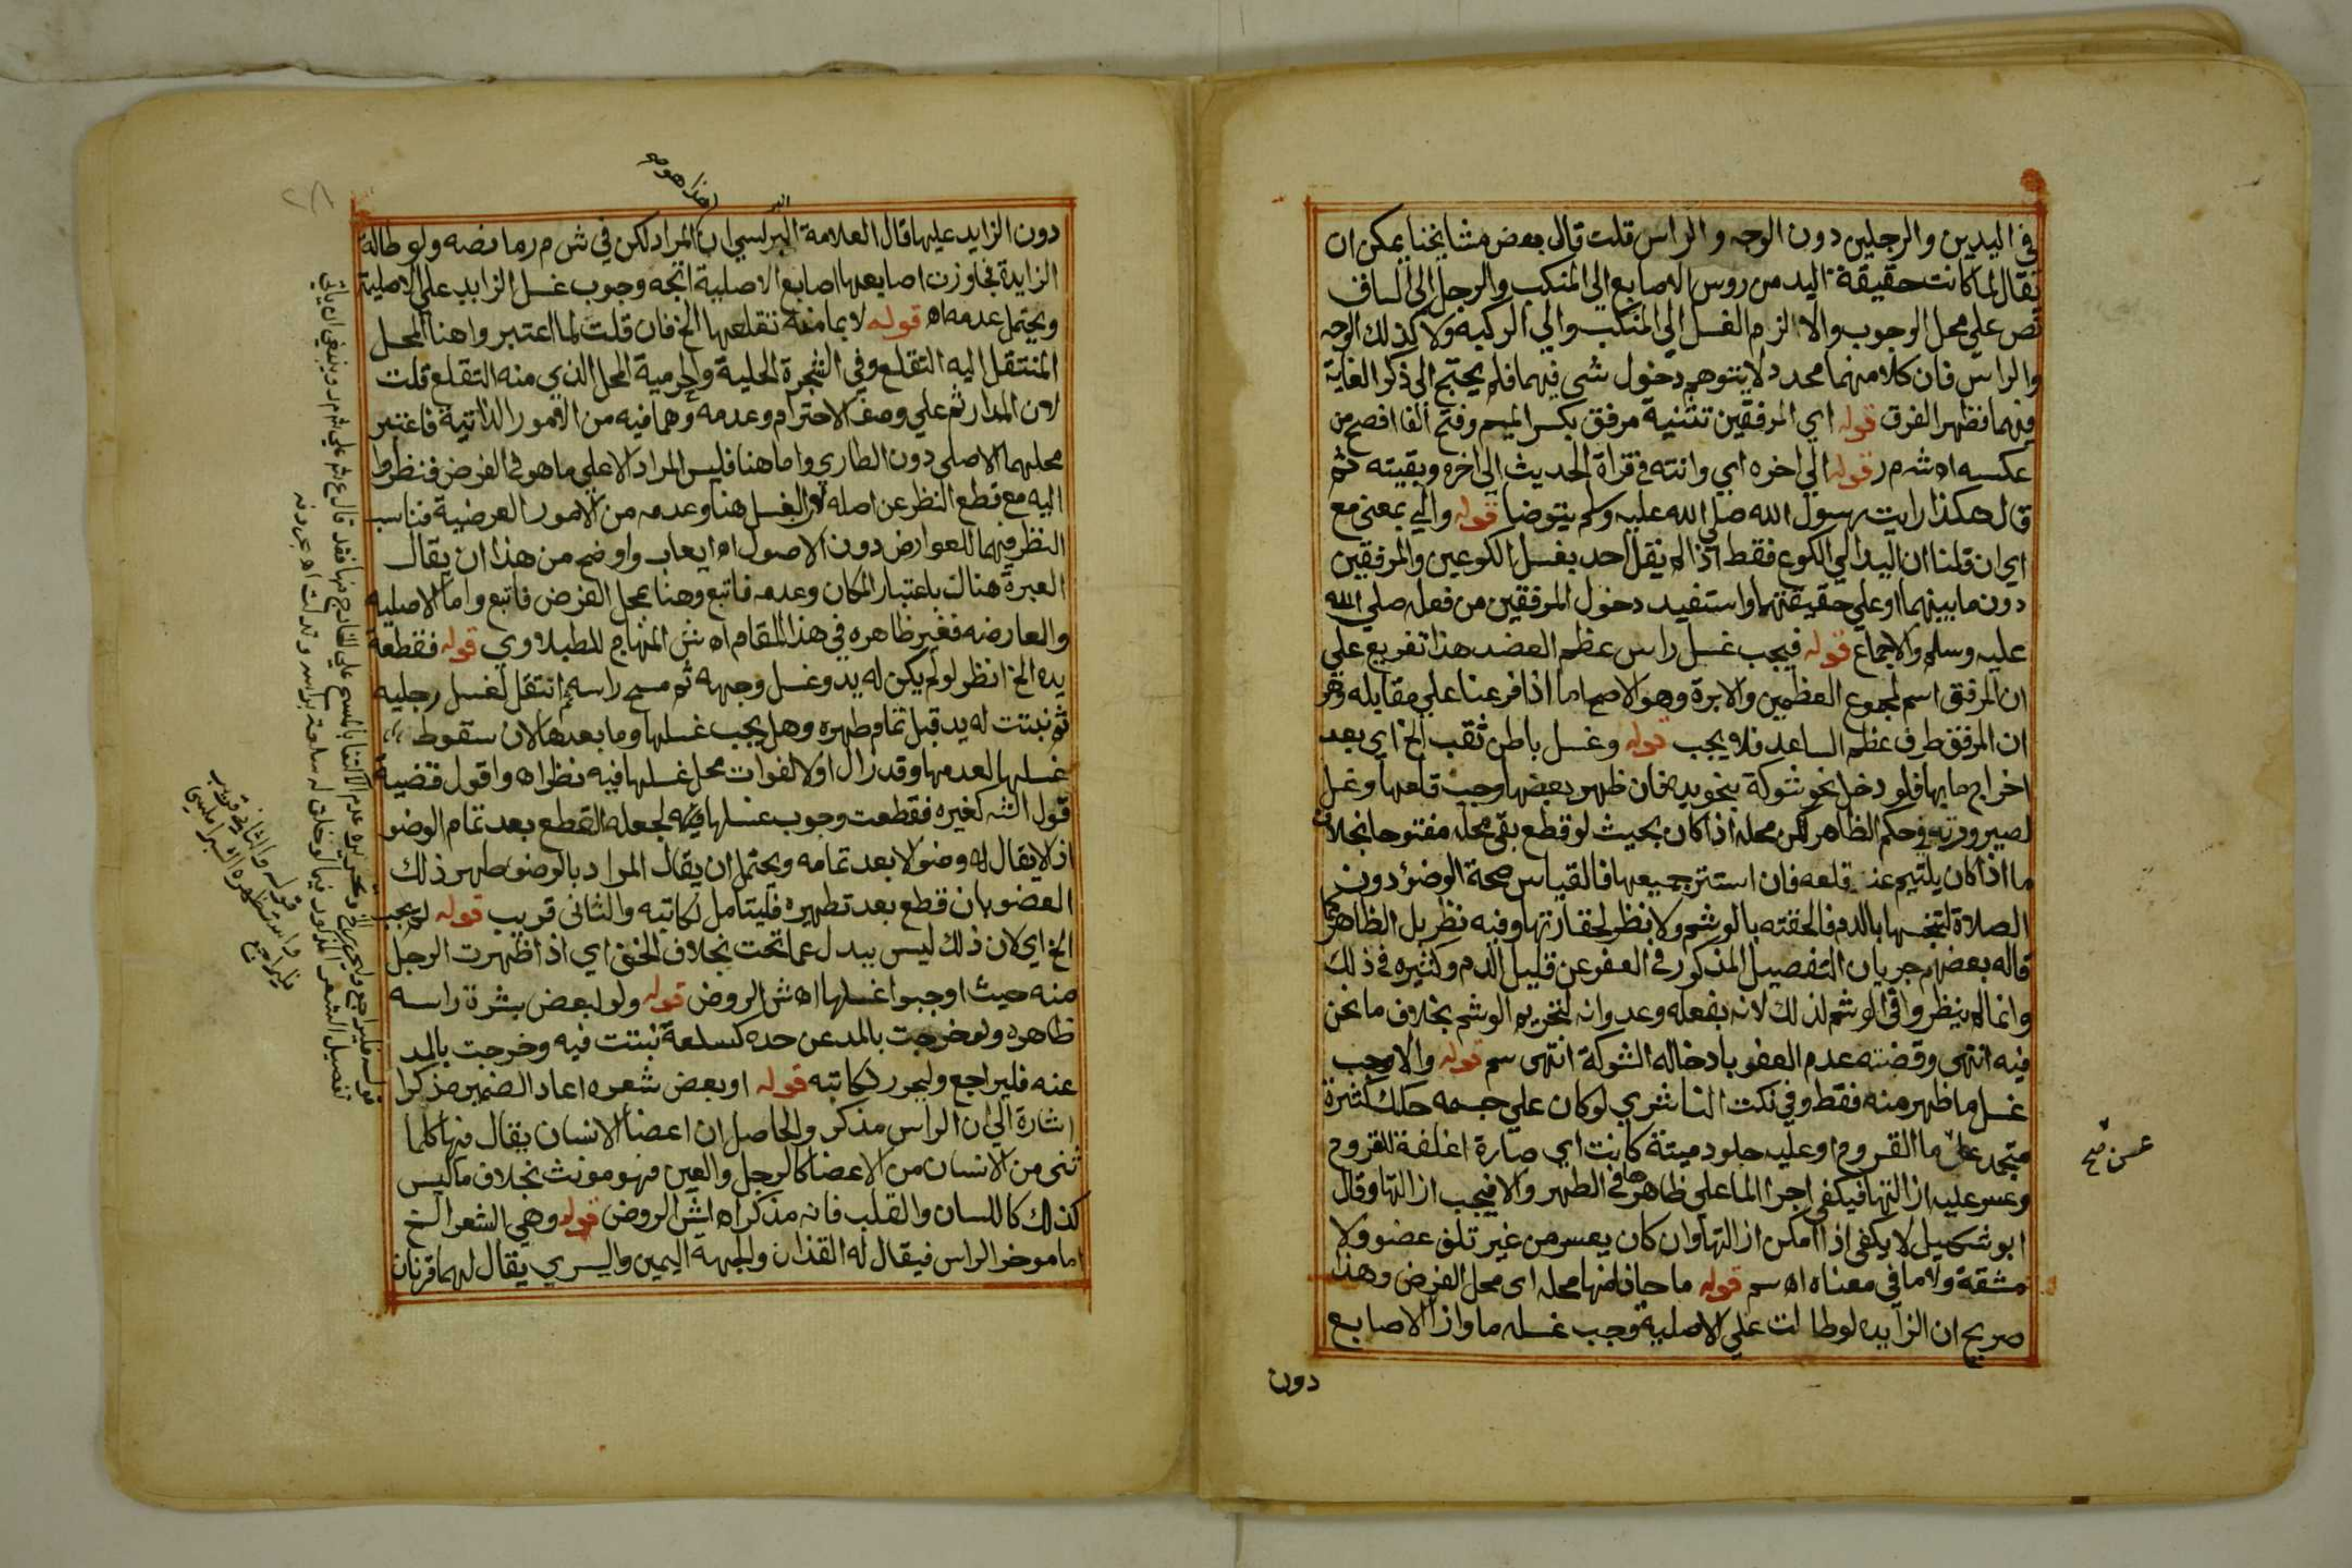 في اليدين والرجلين دون الوجه والراس قلت قال بعض مشايخنا يمكن ان
يقال لما كانت حقيقة اليد من روس الاصابع الي المنكب والرجل الي الساق
نص علي محل الوجوب والا لزم الغسل الي المنكب والي الركبه ولا كذلك الوجه
والراس فان كلا منهما محدد لا يتوهم دخول شي فيهما فلم يحتج الى ذكر الغاية
فيهما فظهر الفرق قوله اي المرفقين تثنية مرفق بكسر الميم وفتح الفا افصح من
عكسه اه ش م ر قوله الي اخره اي وانته في قراة الحديث الي اخره وبقيته ثم
قال هكذا رايت رسول الله صلي الله عليه وسلم يتوضا قوله والي بمعنى مع
اي ان قلنا ان اليد الي الكوع فقط اذ لم يقل احد بغسل الكوعين والمرفقين
دون ما بينهما او علي حقيقتهما واستفيد دخول المرفقين من فعله صلي الله
عليه وسلم والاجماع قوله فيجب غسل راس عظم العضد هذا تفريع علي
ان المرفق اسم لمجموع العظمين والابرة وهو الاصح اما اذا فرعنا علي مقابله وهو
ان المرفق طرف عظم الساعد فلا يجب قوله وغسل باطن ثقب الخ اي بعد
اخراج ما بها فلو دخل نحو شوكة بنحو يده فان ظهر بعضها وجب قلعها وغسل
لصيرورته في حكم الظاهر لكن محله اذا كان بحيث لو قطع بقى محله مفتوحا بخلاف
ما اذا كان يلتيم عند قلعه فان استتر جميعها فالقياس صحة الوضؤ دون
الصلاة لتنجسها بالدم فالحقته بالوشم ولا نظر لحقارتها وفيه نظر بل الظاهر كما
قاله بعضهم جريان التفصيل المذكور في العفو عن قليل الدم وكثيره في ذلك
وانما لم ينظروا في الوشم لذلك لانه بفعله وعدوانه لتحريم الوشم بخلاف ما نحن
فيه انتهى وقضته عدم العفو بادخاله الشوكة انتهى سم قوله والا وجب
غسل ما ظهر منه فقط وفي نكت الناشري لو كان علي جسمه حكك كثيرة
متجمد عن ما القروح او عليه جلود ميتة كانت اي صارة اغلفة القروح
وعسر عليه ازالتها فيكفي اجرا الما علي ظاهرها في الطهر والا فيجب ازالتها وقال
ابو شكيل لا يكفى اذا امكن ازالتها وان كان يعسر من غير تلف عضو ولا
مشقة ولا ما في معناه اه سم قوله ما حاذا منها محله اى محل الفرض وهذا
صريح ان الزايده لو طالت علي الاصلية وجب غسله ما وازا الاصابع
دون
عسرت صح
دون الزايد عليها قال العلامة البرلسي ان المراد لكن في ش م ر ما نصه ولو طالة
الزايدة فجاوزت اصابعها اصابع الاصلية اتجه وجوب غسل الزايد علي الاصلية
ويحتمل عدمه اه قوله لا بما منعه تقلعها الخ فان قلت لما اعتبروا هنا المحل
المنتقل اليه التقلع وفي الشجرة الحلية والحرمية المحل الذي منه التقلع قلت
لان المدار ثم علي وصف الاحترام وعدمه وهما فيه من الامور الذاتية فاعتبر
محلهما الاصلى دون الطاري واما هنا فليس المراد الا علي ما هو في الفرض فنظروا
اليه مع قطع النظر عن اصله لان الغسل هنا وعدمه من الامور العرضية فناسب
النظر فيهما للعوارض دون الاصول اه ايعاب واوضح من هذا ان يقال
العبرة هناك باعتبار المكان وعدمه فاتبع وهنا بمحل الفرض فاتبع واما الاصليه
والعارضه فغير ظاهره في هذا المقام اه ش المنهاج للطبلاوي قوله فقطعة
يده الخ انظر لو لم يكن له يد وغسل وجهه ثم مسح راسه ثم انتقل لغسل رجليه
ثم نبتت له يد قبل تمام طهره وهل يجب غسلها وما بعدها لان سقوط
غسلها لعدمها وقد زال اولا لفوات محل غسلها فيه نظر اه واقول قضية
قول الش كغيره فقطعت وجوب غسلها فيه لجعله القطع بعد تمام الوضو
اذ لا يقال له وضو الا بعد تمامه ويحتمل ان يقال المراد بالوضو طهر ذلك
العضو بان قطع بعد تطهيره فليتامل لكاتبه والثانى قريب قوله لم يجب
الخ اي لان ذلك ليس ببدل عما تحت بخلاف الخف اي اذا ظهرت الرجل
منه حيث اوجبوا غسلها اه ش الروض قوله ولو لبعض بشرة راسه
ظاهره ولو خرجت بالمد عن حده كسلعة نبتت فيه وخرجت بالمد
عنه فليراجع وليحرر لكاتبه قوله او بعض شعره اعاد الضمير مذكرا
اشارة الي ان الراس مذكر والحاصل ان اعضا الانسان يقال فيها كلما
ثنى من الانسان من الاعضا كالرجل والعين فهو مونث بخلاف ما ليس
كذلك كاللسان والقلب فانه مذكر اه ش الروض قوله وهي الشعر الخ
اما موخر الراس فيقال له القذان والجبهة اليمين واليسري يقال لهما قرنان
قوله والثانى قريب
فليراجع